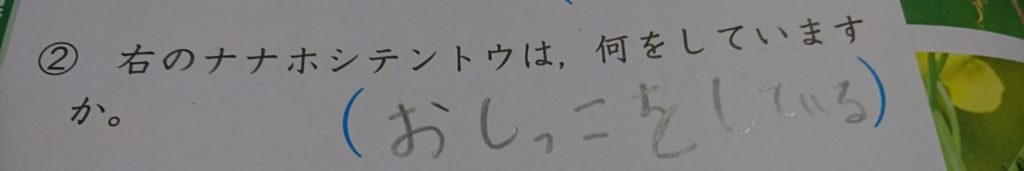 ② 右のナナホシテントウは,何をしています
か。
(おしっこをしている)